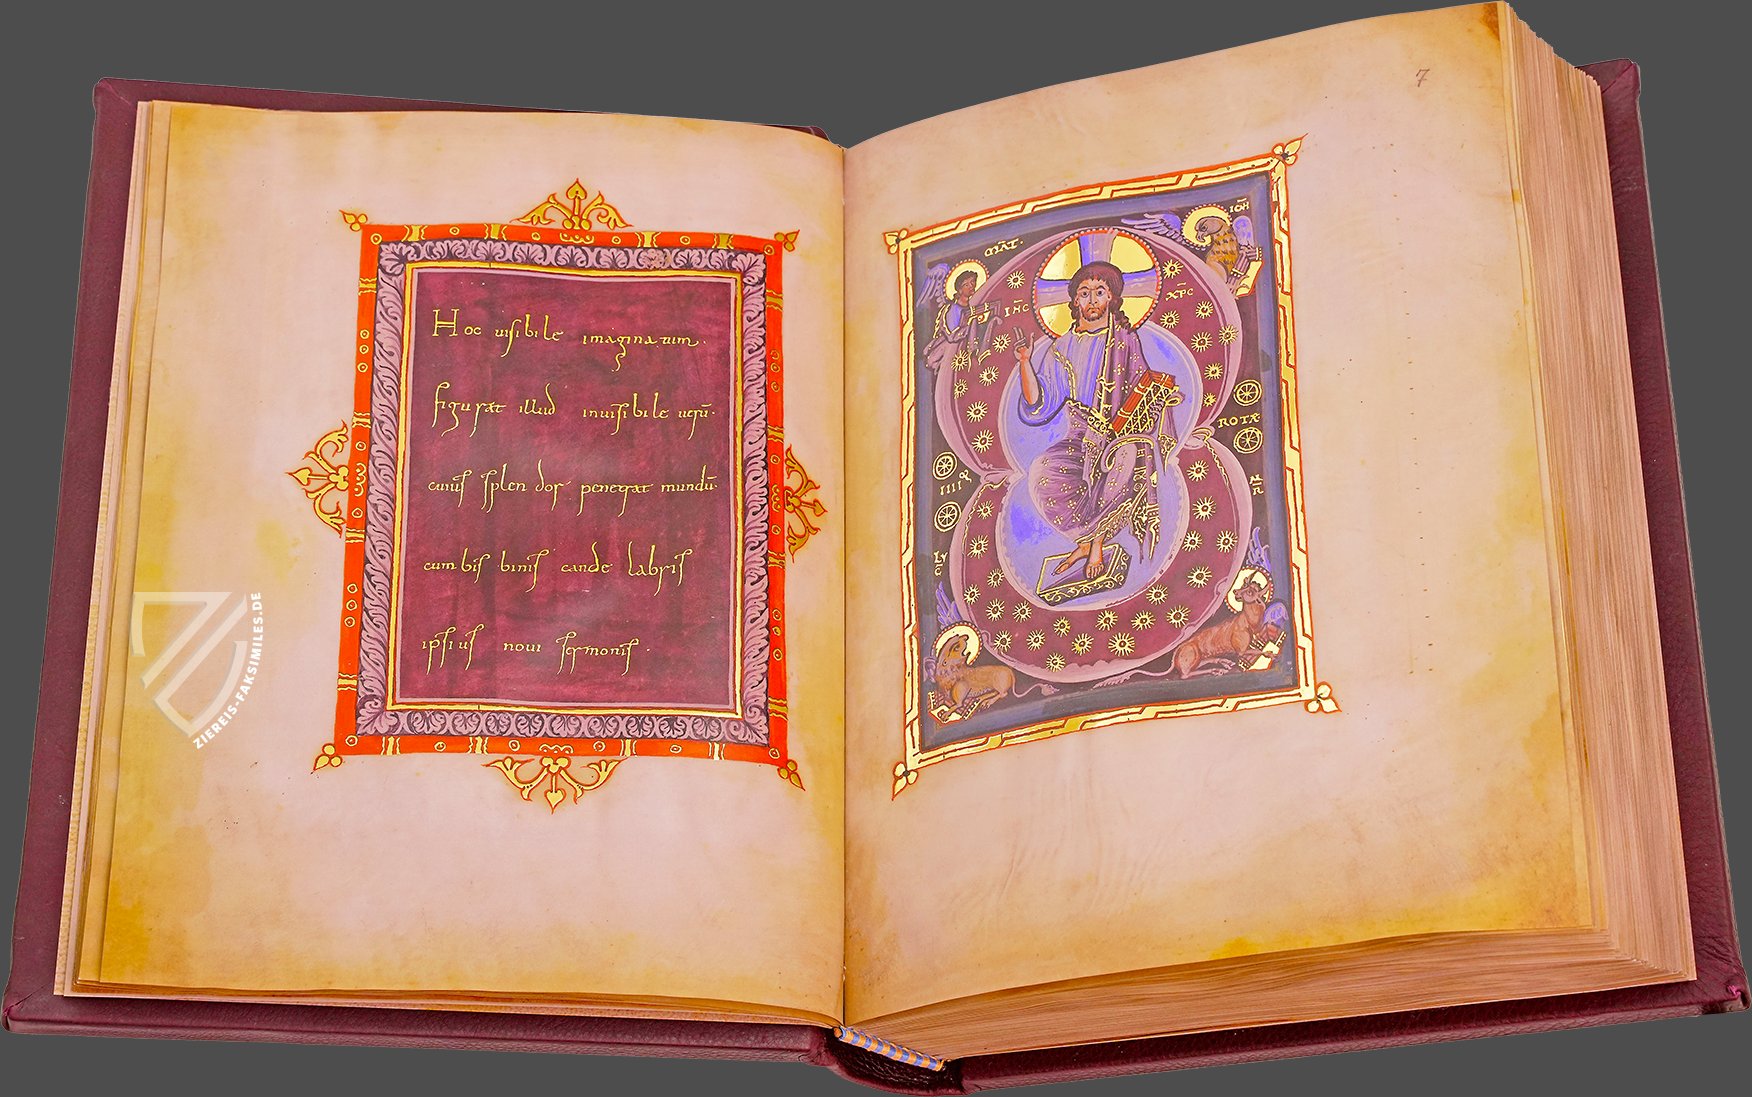 Hoc uisibile imaginatum·
figurat illud inuisibile ueru̅·
cuius splendor penetrat mundu̅·
cum bis binis candelabris
ipsius noui sermonis·
7
MAT·
IOH
IHC
XPC
ROTÆ
IIII&
MR
LVC
ZIEREIS-FAKSIMILES.DE